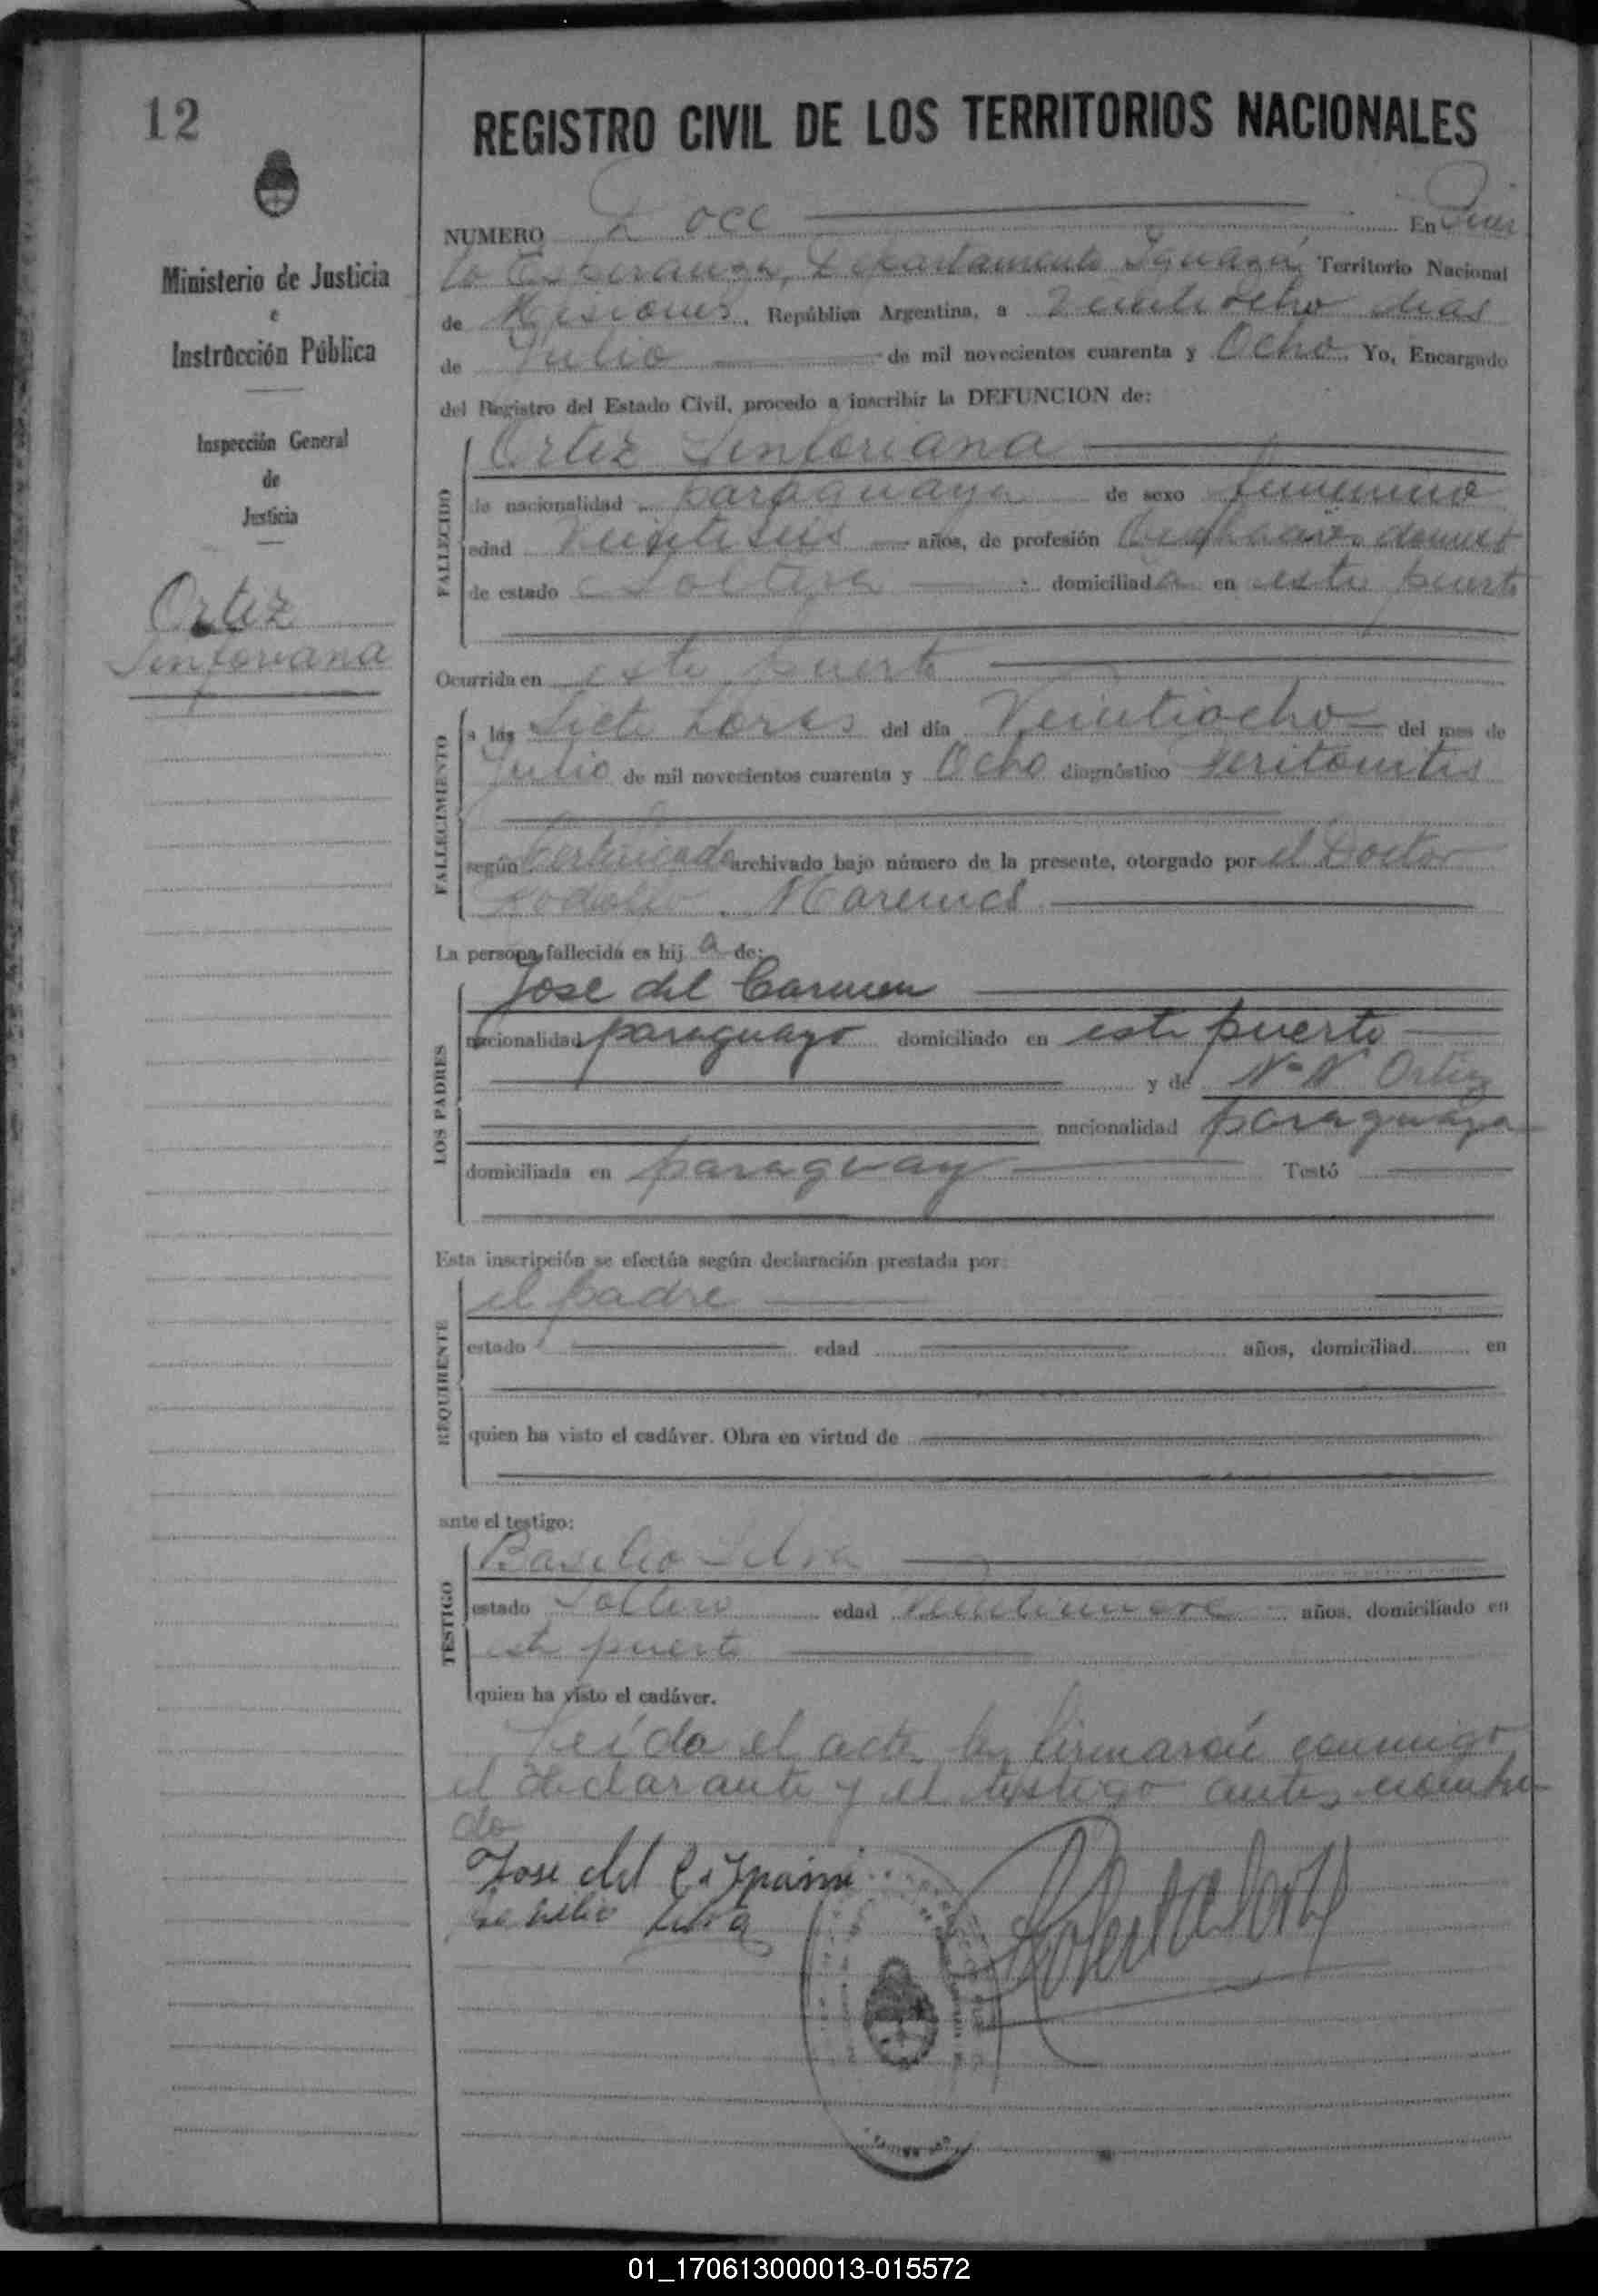 12
REGISTRO CIVIL DE LOS TERRITORIOS NACIONALES
Ministerio de Justicia
e
Instrucción Pública
Inspección General
de
Justicia
Ortiz
Sinforiana
NUMERO Doce En Puer
to Esperanza, Departamento Iguazú Territorio Nacional
de Misiones, República Argentina, a Veintiocho dias
de Julio de mil novecientos cuarenta y Ocho. Yo, Encargado
del Registro del Estado Civil, procedo a inscribir la DEFUNCION de:
Ortiz Sinforiana
FALLECIDO
de nacionalidad paraguaya de sexo femenino
edad Veintiseis años, de profesión
de estado Soltera domiciliada en este puerto
Ocurrida en este puerto
FALLECIMIENTO
a las Siete horas del día Veintiocho del mes de
Julio de mil novecientos cuarenta y Ocho diagnóstico Peritonitis
según Certificado archivado bajo número de la presente, otorgado por el Doctor
Rodolfo
La persona fallecida es hija de:
LOS PADRES
Jose del Carmen
nacionalidad paraguayo domiciliado en este puerto
y de N-N Ortiz
nacionalidad paraguaya
domiciliada en paraguay Testó
Esta inscripción se efectúa según declaración prestada por:
REQUIRENTE
el padre
estado edad años, domiciliad en
quien ha visto el cadáver. Obra en virtud de
ante el testigo:
TESTIGO
Basilio Silva
estado Soltero edad Veintinueve años, domiciliado en
este puerto
quien ha visto el cadáver.
Leída el acta la firmarón conmigo
el declarante y el testigo antes nombra
do
Jose del
Basilio Silva
01_170613000013-015572